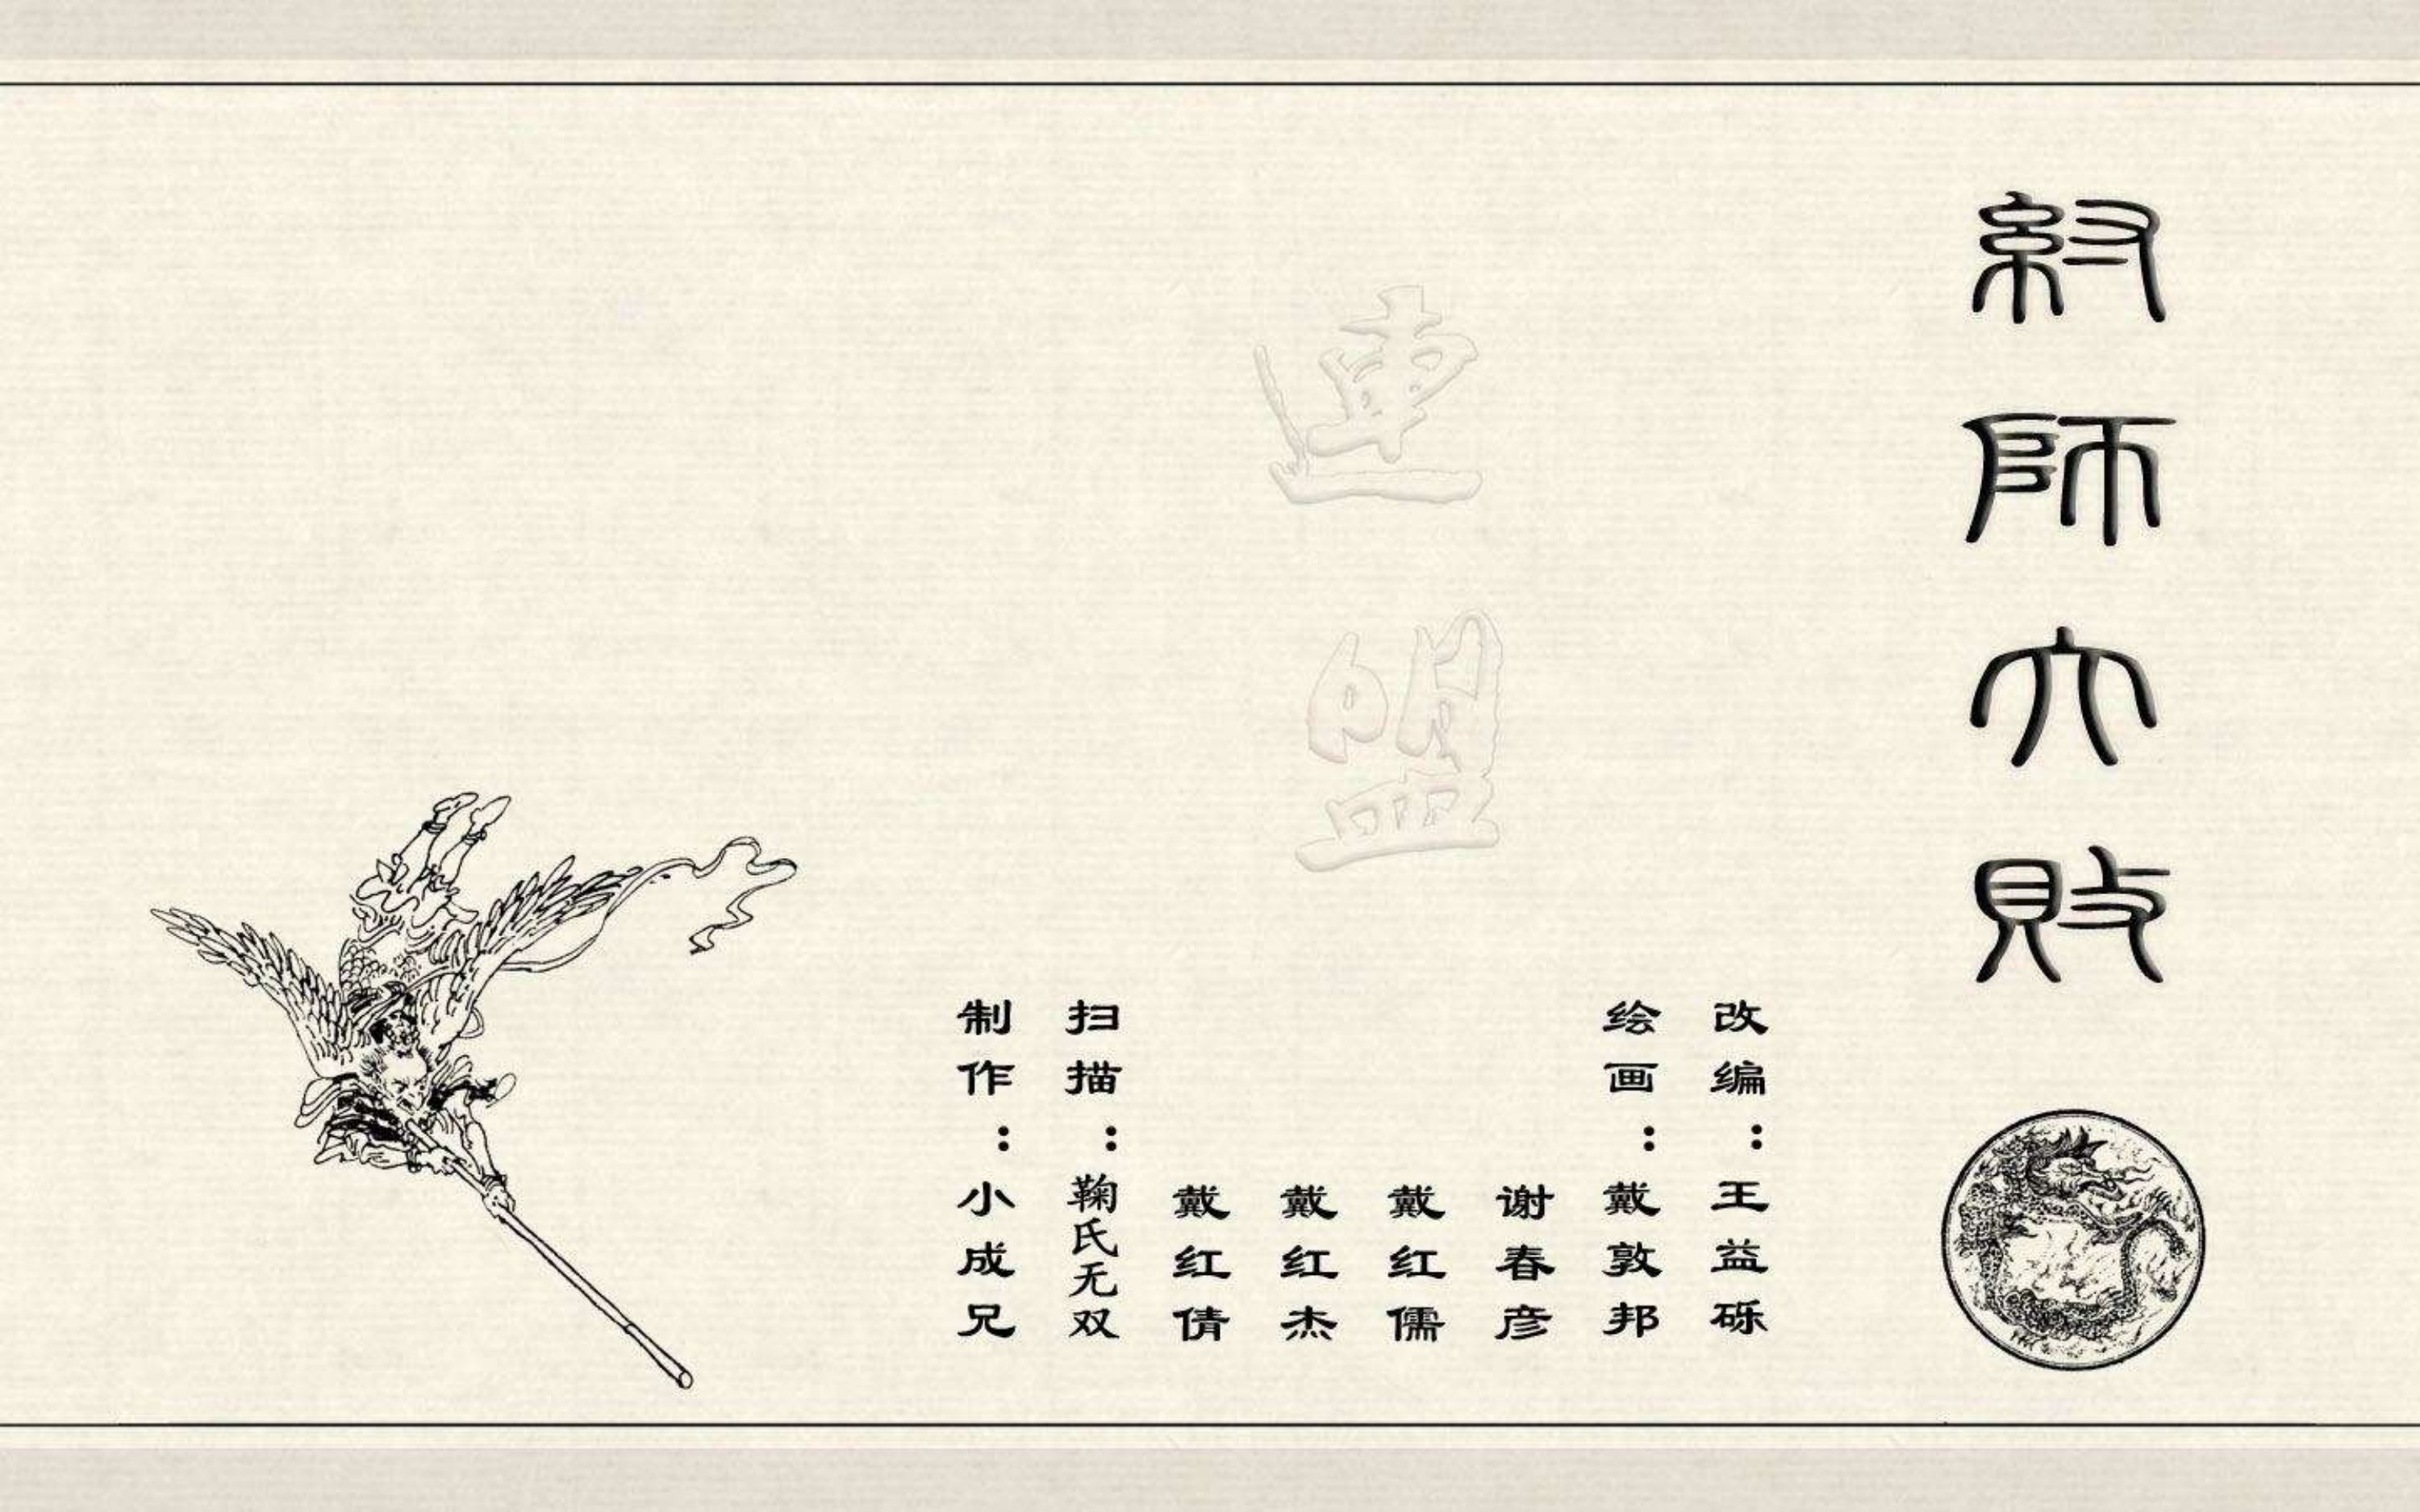 紂師大敗
改编：王益砾
绘画：戴敦邦
谢春彦
戴红儒
戴红杰
戴红倩
扫描：鞠氏无双
制作：小成兄
連盟